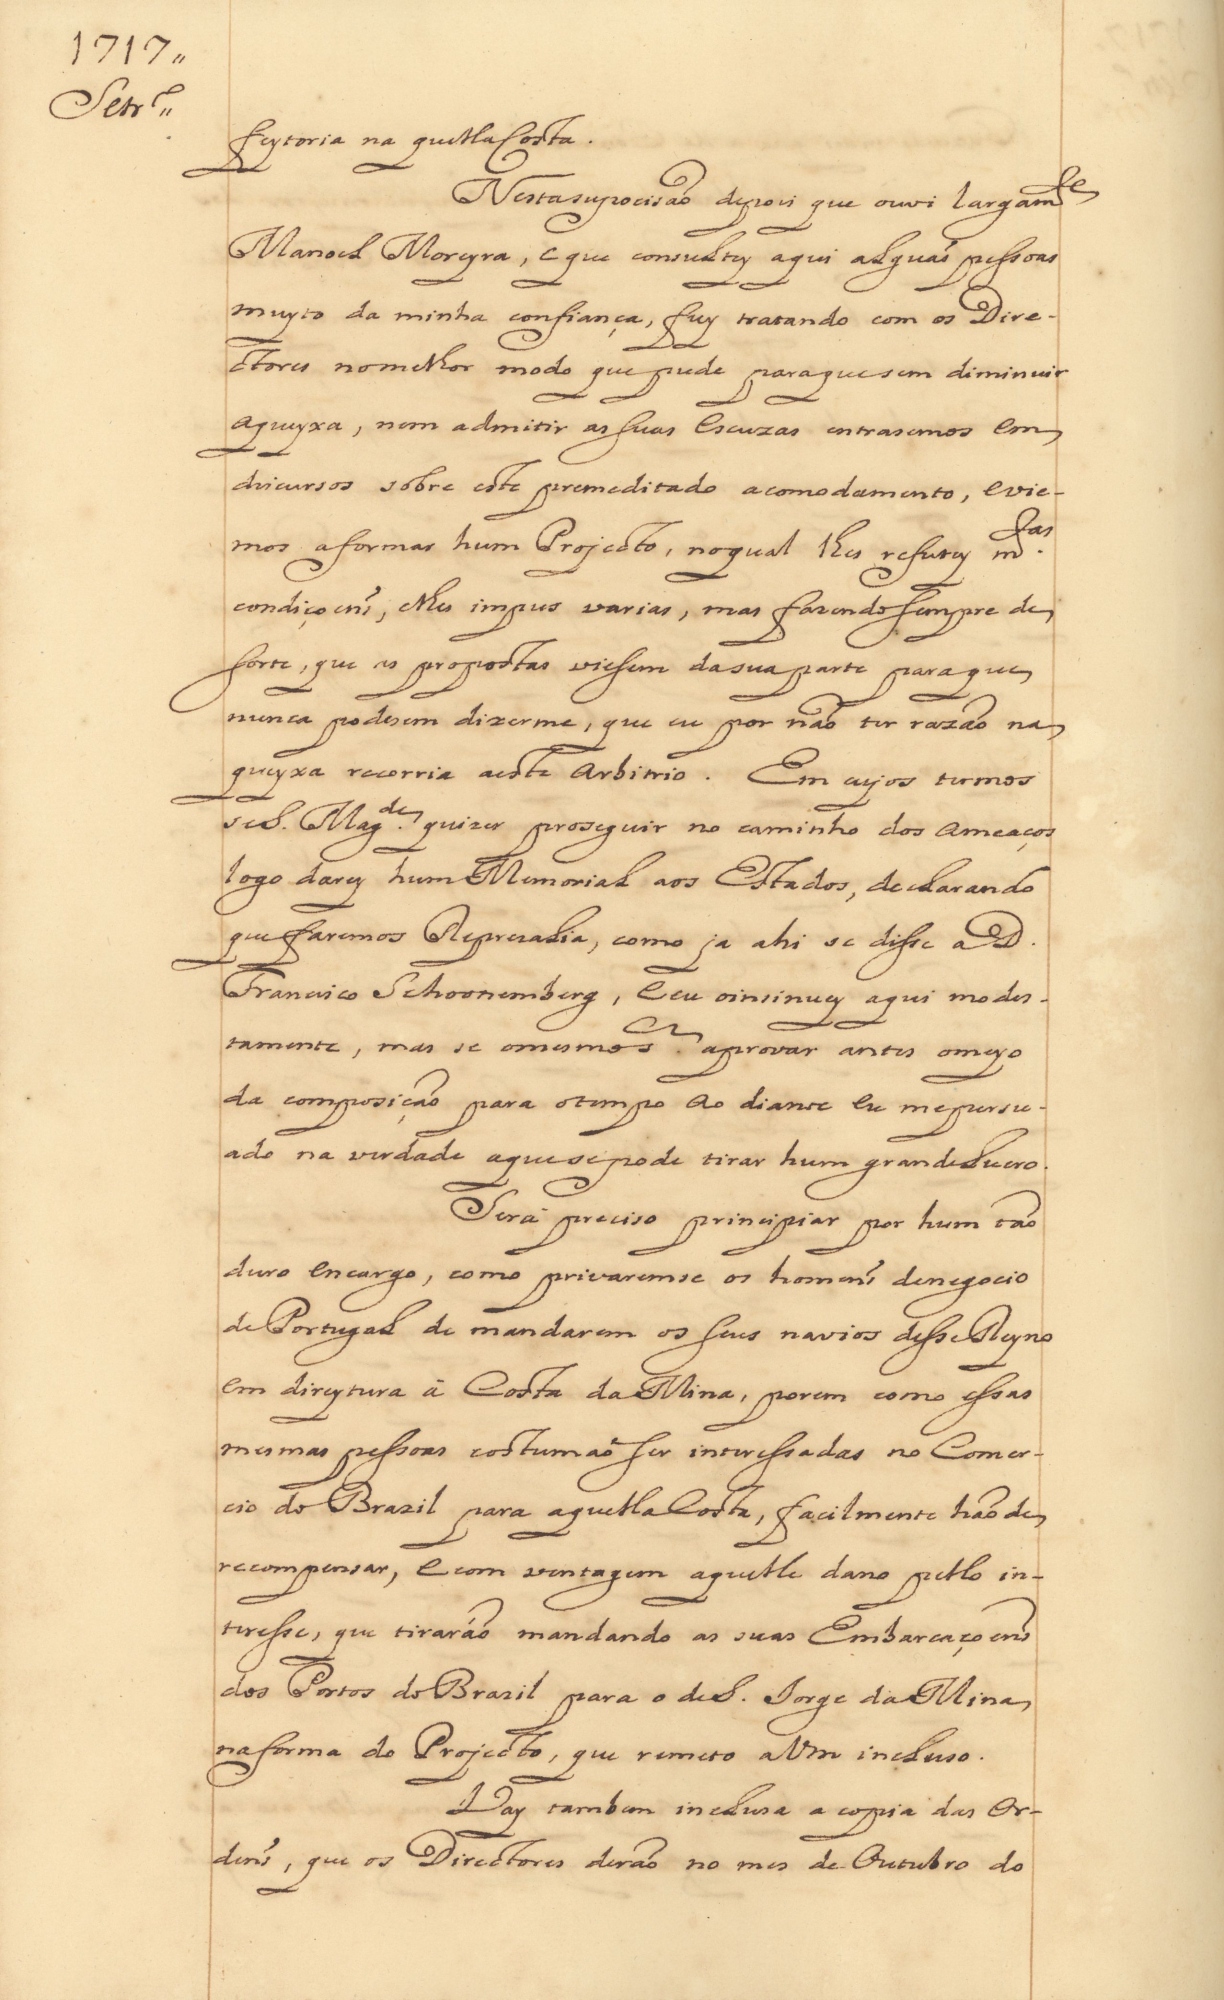 1717,,
Setr.e,,
feytoria na quella Costa.
Nesta suposisão depois que ouvi largam.te
Manoel Moreyra, e que consultey aqui alguás pessoas
muyto da minha confiança, fuy tratando com os Dire-
ctores no melhor modo que pude para que sem diminuir
a queyxa, nem admitir as suas Escuzas entrasemos em
discursos sobre este premeditado acomodamento, e vie-
mos a formar hum Projecto, no qual lhes refutey m.tas
condiçoens, e lhes impus varias, mas fazendo sempre de
sorte, que as propostas viesem da sua parte para que
nunca podesem dizerme, que eu por não ter razão na
queyxa recorria a este Arbitrio. Em cujos termos
se S. Mag.de quizer proseguir no caminho dos Ameaços
logo darey hum Memorial aos Estados, declarando
que faremos Represalia, como ja ahi se disse a D.
Francisco Schoonemberg, e eu o insinuey aqui modes-
tamente, mas se o mesmo S.r aprovar antes o meyo
da composição para o tempo Ao diante Eu me persu-
ado na verdade a que se pode tirar hum grande Lucro.
Será preciso principiar por hum tão
duro Encargo, como privaremse os homens de negocio
de Portugal de mandarem os seus navios desse Reyno
em direytura á Costa da Mina, porem como essas
mesmas pessoas costumaõ ser interessadas no Comer-
cio do Brazil para aquella Costa, facilmente hão de
recompensar, e com ventagem aquelle dano pello in-
teresse, que tirarão mandando as suas Embarcaçoens
dos Portos do Brazil para o de S. Jorge da Mina
na forma do Projecto, que remeto a Vm incluso.
Vay tambem inclusa a copia das Or-
dens, que os Directores derão no mes de Outubro do